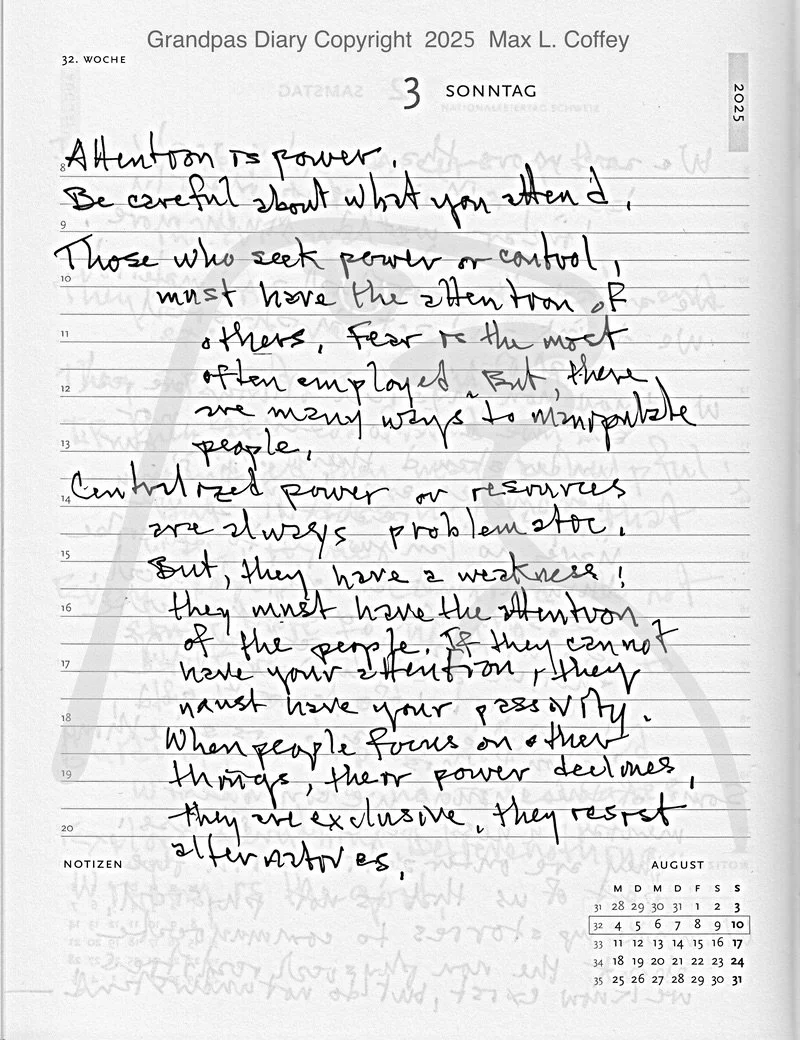 Grandpas Diary Copyright 2025 Max L. Coffey
32. WOCHE
3 SONNTAG
2025
Attention is power.
8
Be careful about what you attend.
9
Those who seek power or control,
10
must have the attention of
11
others. Fear is the most
12
often employed. But, there
are many ways to manipulate
13
people.
14
Centralized power or resources
are always problematic.
15
But, they have a weakness!
16
they must have the attention
of the people. If they cannot
17
have your attention, they
must have your passivity.
18
When people focus on other
19
things, their power declines,
they are exclusive, they resist
20
alternatives.
NOTIZEN
AUGUST
M D M D F S S
31 28 29 30 31 1 2 3
32 4 5 6 7 8 9 10
33 11 12 13 14 15 16 17
34 18 19 20 21 22 23 24
35 25 26 27 28 29 30 31